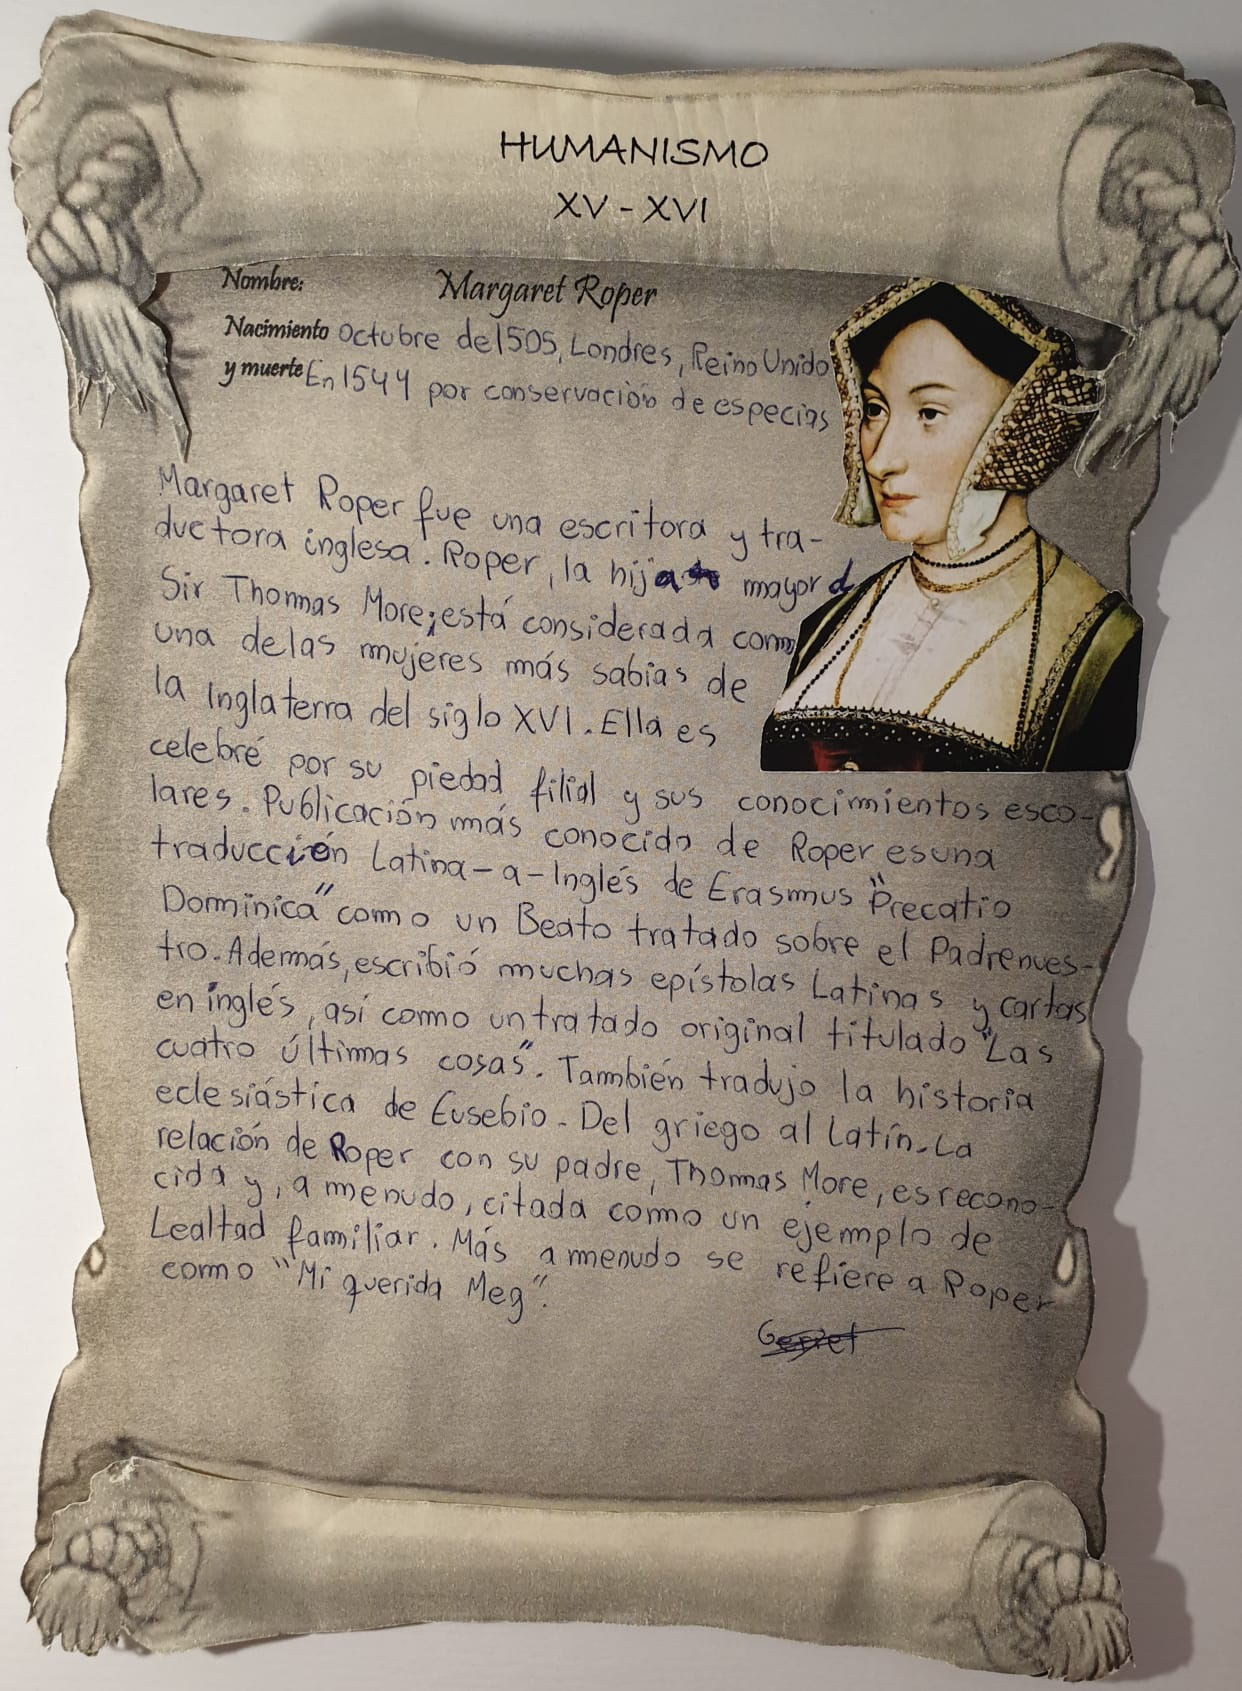 HUMANISMO
XV - XVI
Nombre: Margaret Roper
Nacimiento Octubre de 1505, Londres, Reino Unido
y muerte En 1544 por conservación de especias
Margaret Roper fue una escritora y tra-
ductora inglesa. Roper, la hija mayor d
Sir Thomas More, está considerada como
una de las mujeres más sabias de
la Inglaterra del siglo XVI. Ella es
celebré por su piedad filial y sus conocimientos esco-
lares. Publicación más conocida de Roper es una
traducción Latina-a-Inglés de Erasmus "Precatio
Dominica" como un Beato tratado sobre el Padrenues-
tro. Además, escribió muchas epístolas Latinas y cartas
en inglés, así como un tratado original titulado "Las
cuatro últimas cosas". También tradujo la historia
eclesiástica de Eusebio. Del griego al Latín. La
relación de Roper con su padre, Thomas More, es recono-
cida y, a menudo, citada como un ejemplo de
Lealtad familiar. Más a menudo se refiere a Roper
como "Mi querida Meg".